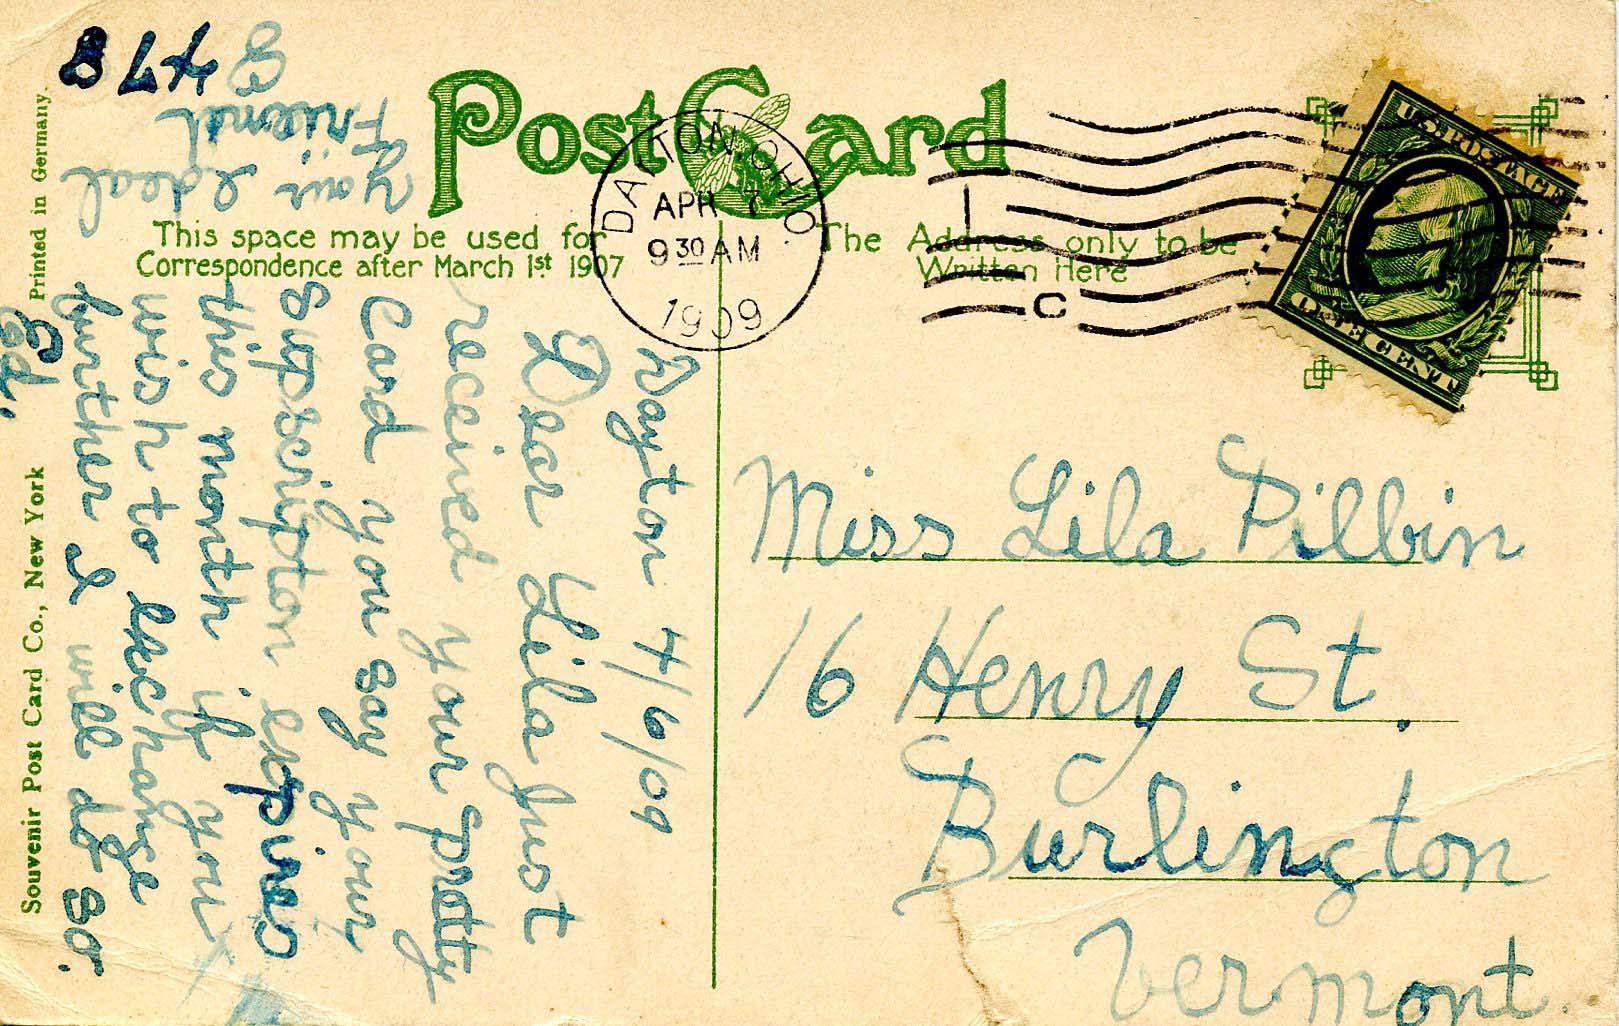 Post Card
This space may be used for
Correspondence after March 1st 1907
The Address only to be
Written Here
DAYTON, OHIO.
APR 7
9 30 AM
1909
C
U.S. POSTAGE
ONE CENT
Dayton 4/6/09
Dear Lila Just
received your pretty
Card you say your
Supscripton expires
this month if you
wish to exchange
further I will do so.
your Ideal
Friend
Miss Lila Pillbin
16 Henry St.
Burlington
Vermont.
Printed in Germany.
Souvenir Post Card Co., New York